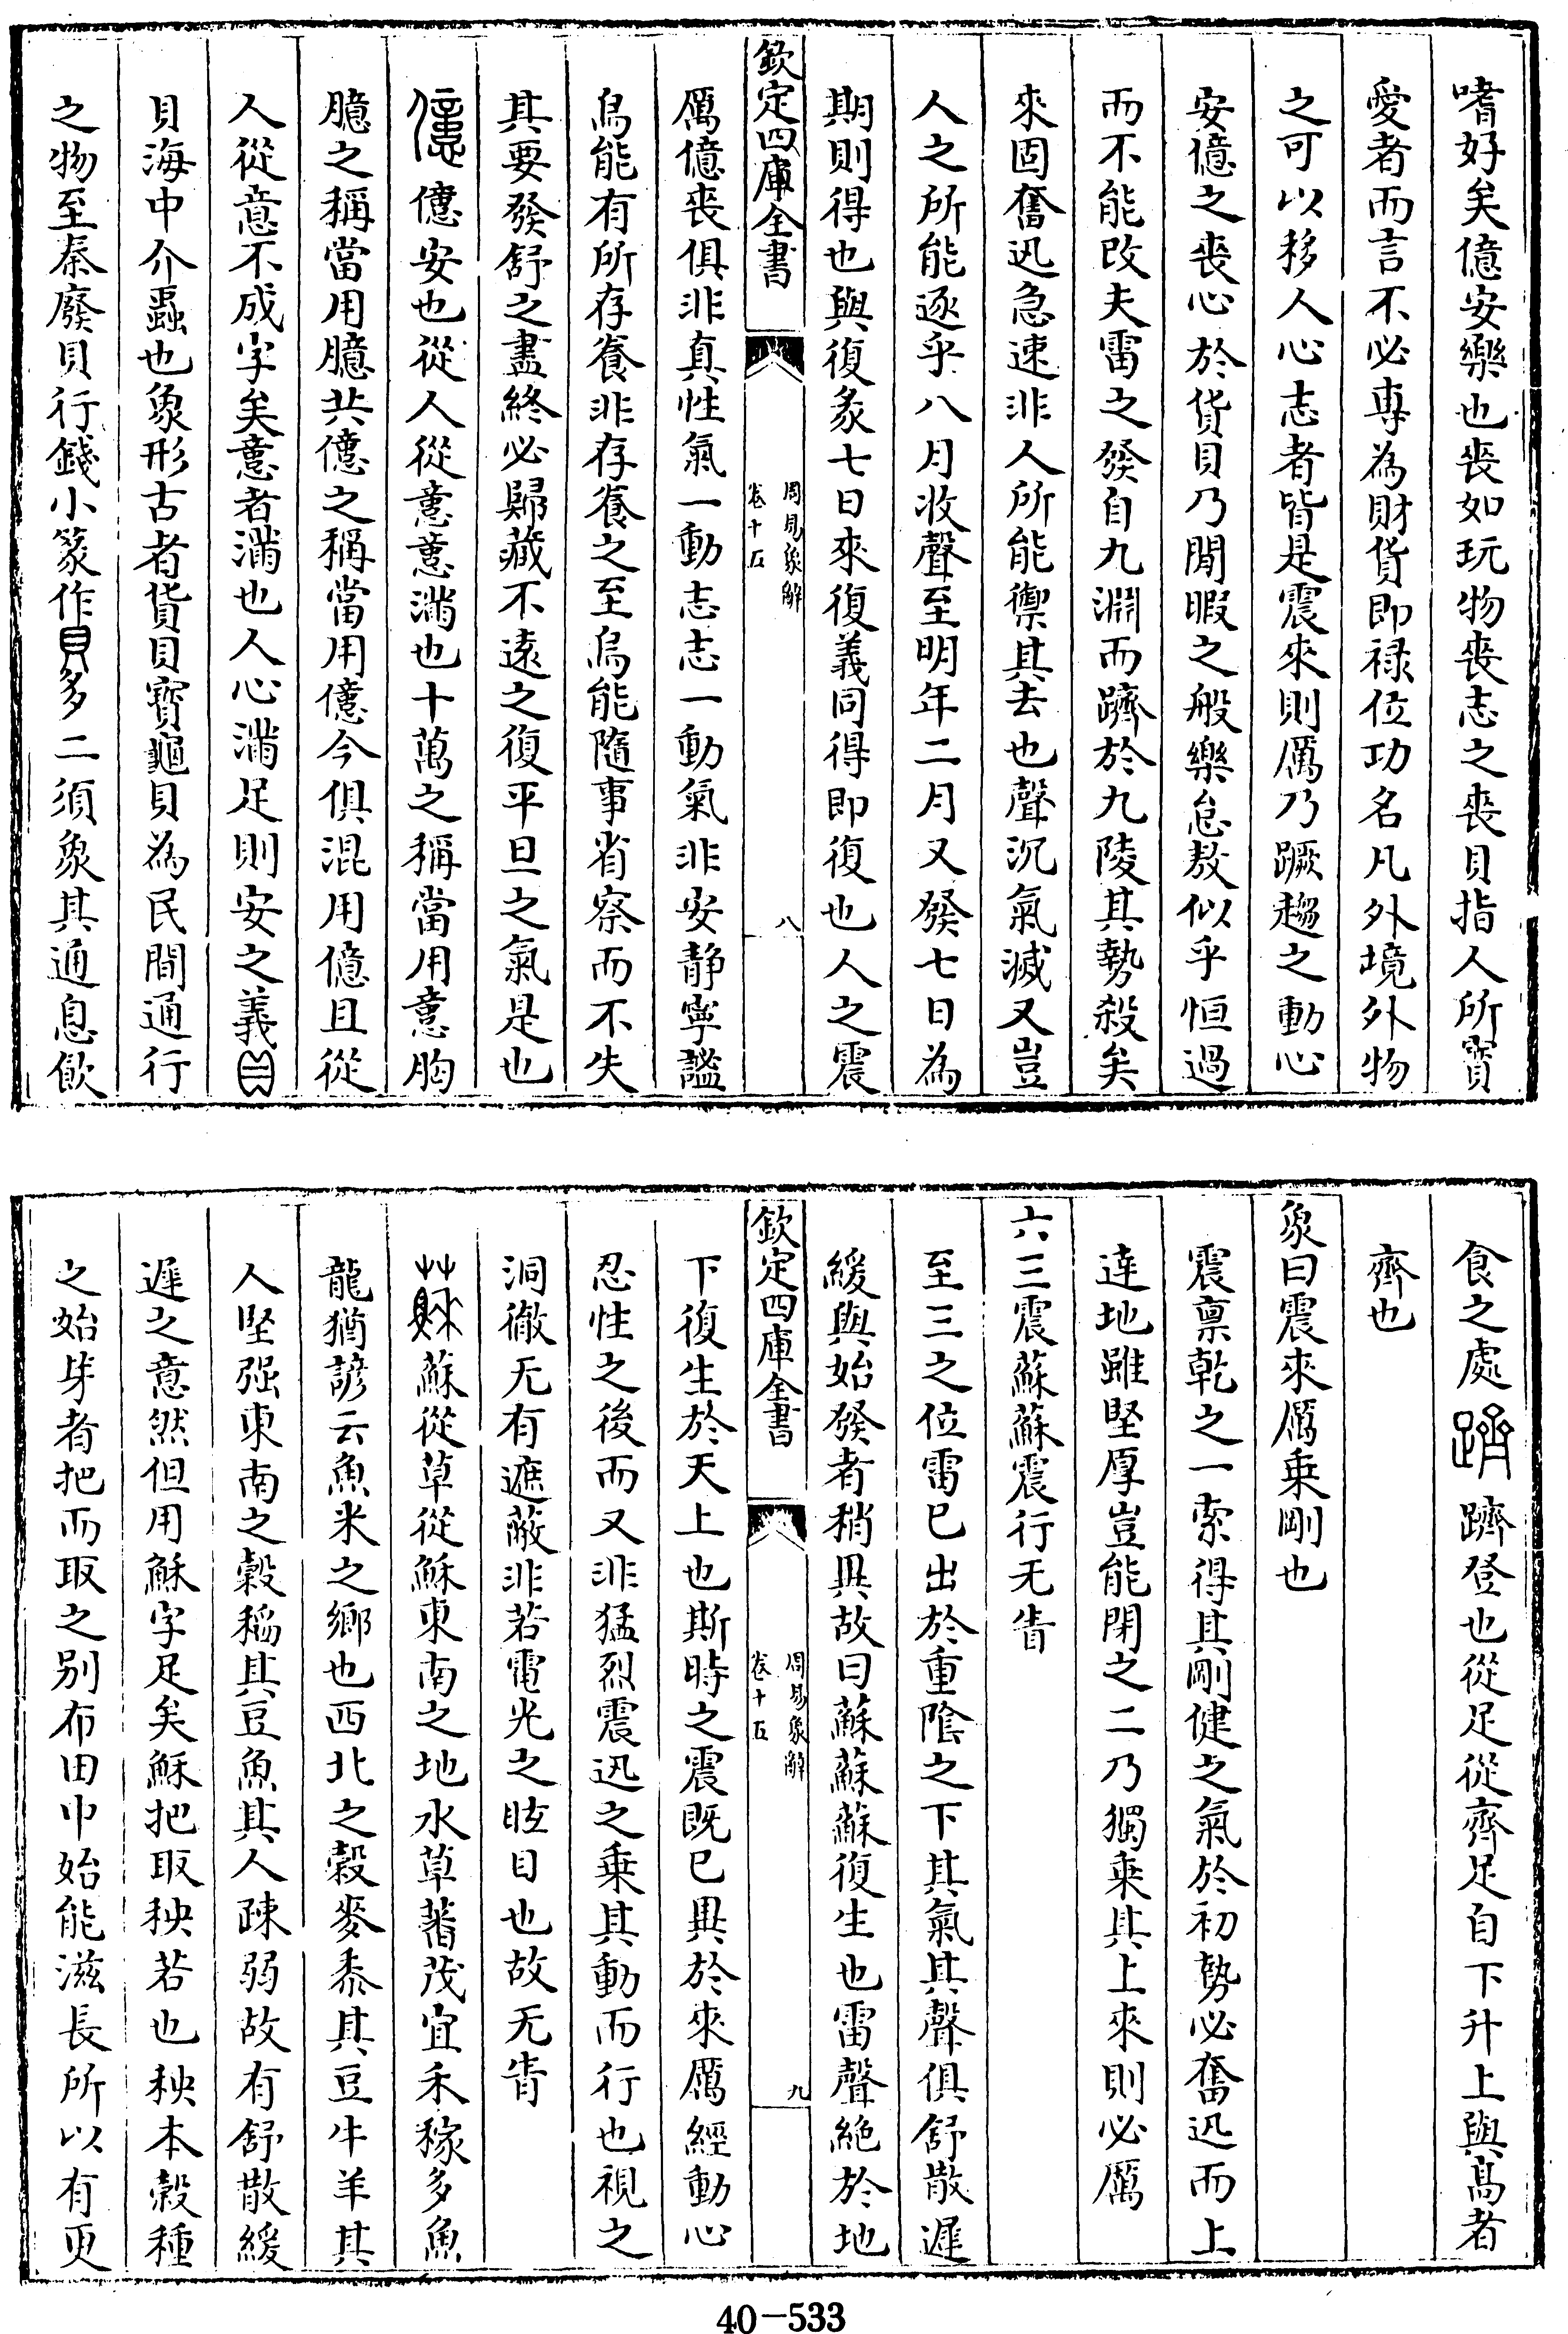 嗜好矣億安樂也喪如玩物喪志之喪貝指人所寳
愛者而言不必專為財貨即禄位功名凡外境外物
之可以移人心志者皆是震來則厲乃蹶趨之動心
安億之喪心於貨貝乃閒暇之般樂怠敖似乎恒過
而不能改夫雷之發自九淵而躋於九陵其勢殺矣
來固奮迅急速非人所能禦其去也聲沉氣滅又豈
人之所能逐乎八月收聲至明年二月又發七日為
期則得也與復彖七日來復義同得即復也人之震
欽定四庫全書
周易象解
卷十五
八
厲億喪俱非真性氣一動志志一動氣非安静寧謐
烏能有所存養非存養之至烏能隨事省察而不失
其要發舒之盡終必歸藏不遠之復平旦之氣是也
億億安也從人從意意滿也十萬之稱當用意胸
臆之稱當用臆共億之稱當用億今俱混用億且從
人從意不成字矣意者滿也人心滿足則安之義貝
貝海中介蟲也象形古者貨貝寳龜貝為民間通行
之物至秦廢貝行錢小篆作貝多二須象其通息飲
食之處躋躋登也從足從齊足自下升上與髙者
齊也
象曰震來厲乗剛也
震禀乾之一索得其剛健之氣於初勢必奮迅而上
逹地雖堅厚豈能閉之二乃獨乗其上來則必厲
六三震蘇蘇震行无眚
至三之位雷已出於重隂之下其氣其聲俱舒散遲
緩與始發者稍異故曰蘇蘇蘇復生也雷聲絶於地
欽定四庫全書
周易象解
卷十五
九
下復生於天上也斯時之震既已異於來厲經動心
忍性之後而又非猛烈震迅之乗其動而行也視之
洞徹无有遮蔽非若電光之眩目也故无眚
蘇蘇從草從穌東南之地水草蕃茂宜禾稼多魚
龍猶諺云魚米之鄉也西北之穀麥黍其豆牛羊其
人堅强東南之穀稻其豆魚其人疎弱故有舒散緩
遲之意然但用穌字足矣穌把取秧若也秧本榖種
之始芽者把而取之别布田中始能滋長所以有更
40-533